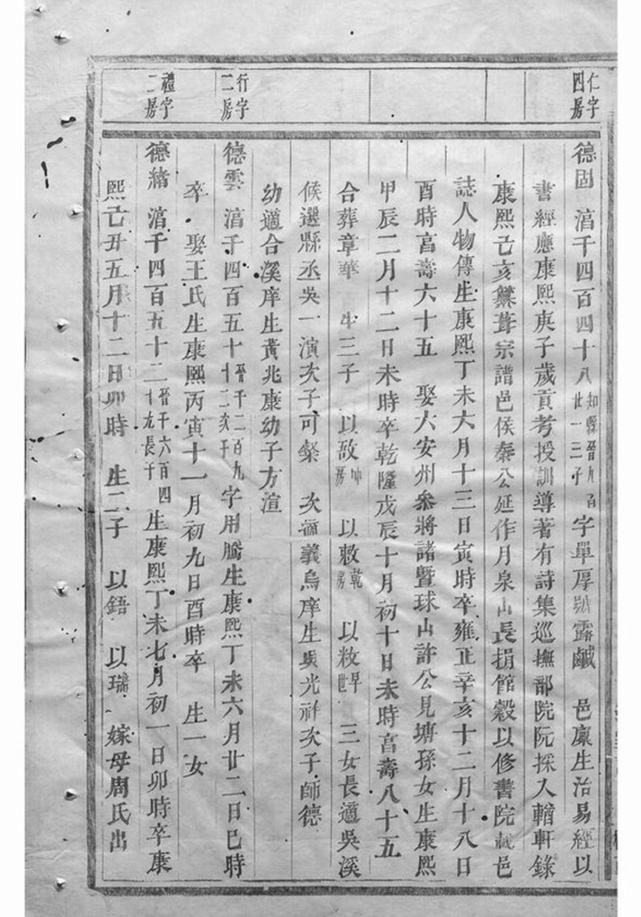 仁字四房
行字二房
禮字二房
德固 湻千四百四十八 知縣晉九百廿一三子 字單厚號露鹹 邑廩生治易經以
書經應康熙庚子歲貢考授訓導著有詩集巡撫部院阮採入輶軒錄
康熙己亥纂葺宗譜邑侯秦公延作月泉山長捐館穀以修書院載邑
誌人物傳生康熙丁未六月十三日寅時卒雍正辛亥十二月十八日
酉時高壽六十五 娶六安州參將諸暨球山許公見塘孫女生康熙
甲辰二月十二日未時卒乾隆戊辰十月初十日未時高壽八十五
合葬章華 生三子 以故 坤房 以敕 乾房 以敉 早世 三女長適吳溪
候選縣丞吳一演次子可粲 次適義烏庠生吳光祥次子師德
幼適合溪庠生黃兆康幼子方渲
德雲 湻千四百五十 晉千二百九十二次子 字用騰生康熙丁未六月廿二日巳時
卒 娶王氏生康熙丙寅十一月初九日酉時卒 生一女
德緒 湻千四百五十二 晉千六百四十九長子 生康熙丁未七月初一日卯時卒康
熙己丑五月十二日卯時 生二子 以鋙 以瑞 嫁母周氏出